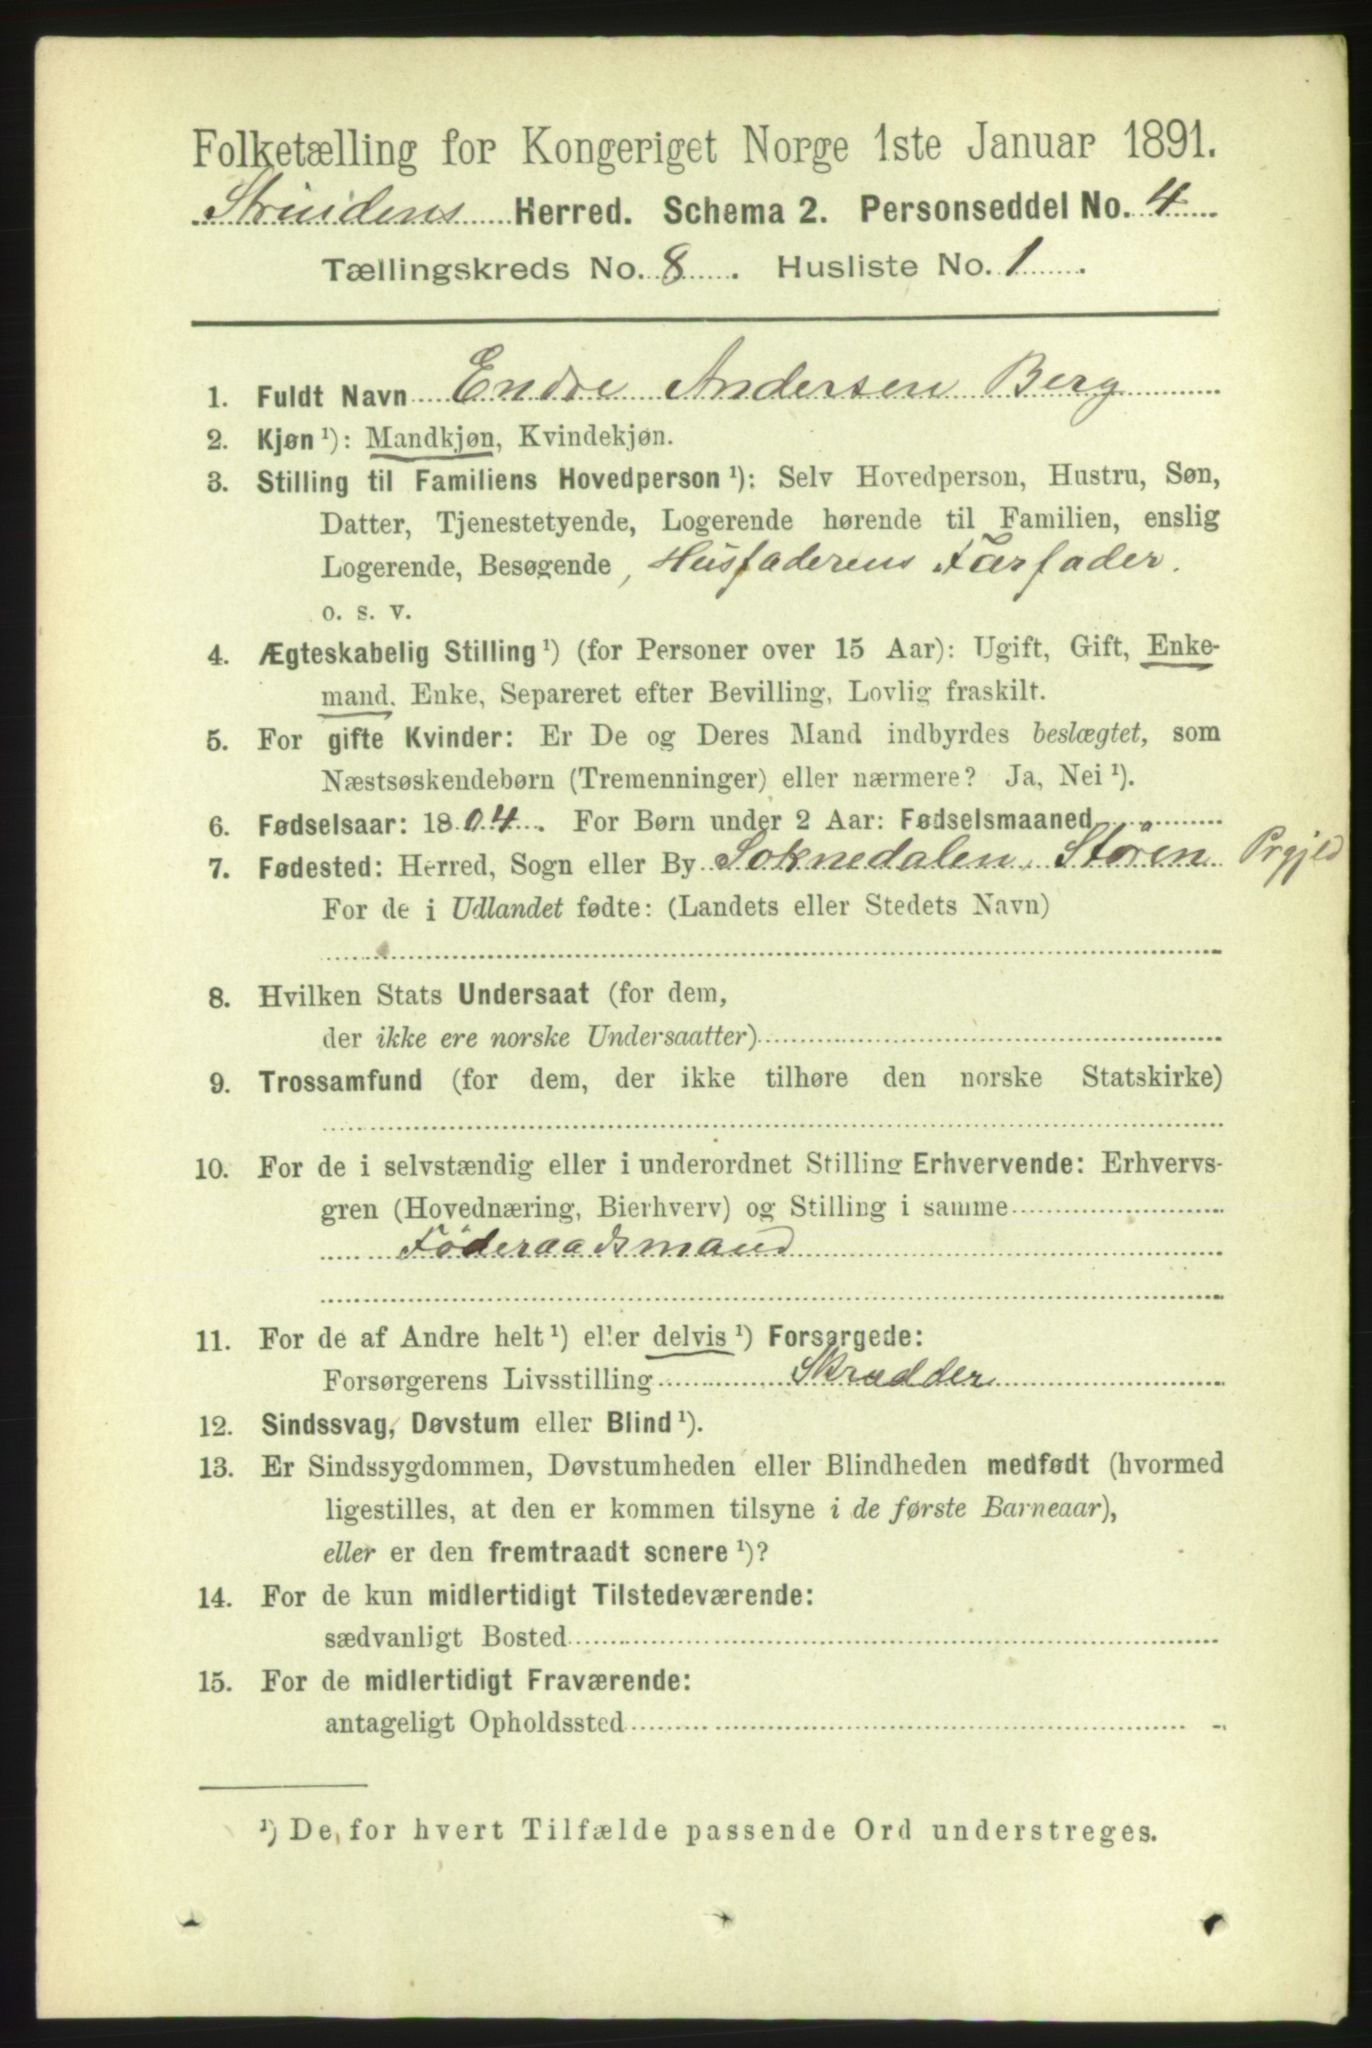 Folketælling for Kongeriget Norge 1ste Januar 1891.
Strindens Herred. Schema 2. Personseddel No. 4
Tællingskreds No. 8. Husliste No. 1.
1. Fuldt Navn Endre Andersen Berg
2. Kjøn ¹): Mandkjøn, Kvindekjøn.
3. Stilling til Familiens Hovedperson ¹): Selv Hovedperson, Hustru, Søn,
Datter, Tjenestetyende, Logerende hørende til Familien, enslig
Logerende, Besøgende, Husfaderens Farfader.
o. s. v.
4. Ægteskabelig Stilling ¹) (for Personer over 15 Aar): Ugift, Gift, Enke-
mand. Enke, Separeret efter Bevilling, Lovlig fraskilt.
5. For gifte Kvinder: Er De og Deres Mand indbyrdes beslægtet, som
Næstsøskendebørn (Tremenninger) eller nærmere? Ja, Nei ¹).
6. Fødselsaar: 1804. For Børn under 2 Aar: Fødselsmaaned
7. Fødested: Herred, Sogn eller By Soknedalen, Stören Prgjld
For de i Udlandet fødte: (Landets eller Stedets Navn)
8. Hvilken Stats Undersaat (for dem,
der ikke ere norske Undersaatter)
9. Trossamfund (for dem, der ikke tilhøre den norske Statskirke)
10. For de i selvstændig eller i underordnet Stilling Erhvervende: Erhvervs-
gren (Hovednæring, Bierhverv) og Stilling i samme
Föderaadsmand
11. For de af Andre helt ¹) eller delvis ¹) Forsørgede:
Forsørgerens Livsstilling Skrædder
12. Sindssvag, Døvstum eller Blind ¹).
13. Er Sindssygdommen, Døvstumheden eller Blindheden medfødt (hvormed
ligestilles, at den er kommen tilsyne i de første Barneaar),
eller er den fremtraadt senere ¹)?
14. For de kun midlertidigt Tilstedeværende:
sædvanligt Bosted
15. For de midlertidigt Fraværende:
antageligt Opholdssted
¹) De for hvert Tilfælde passende Ord understreges.